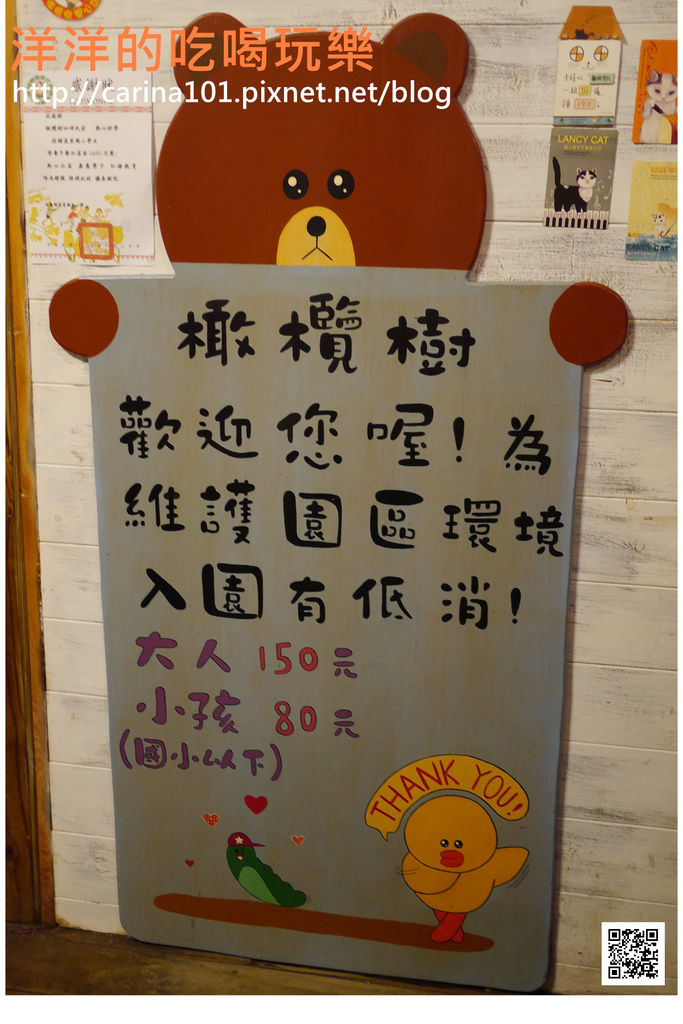 洋洋的吃喝玩樂
http://carina101.pixnet.net/blog
LANCY CAT
橄欖樹
歡迎您喔!為
維護園區環境
入園有低消!
大人 150元
小孩 80元
(國小以下)
THANK YOU!